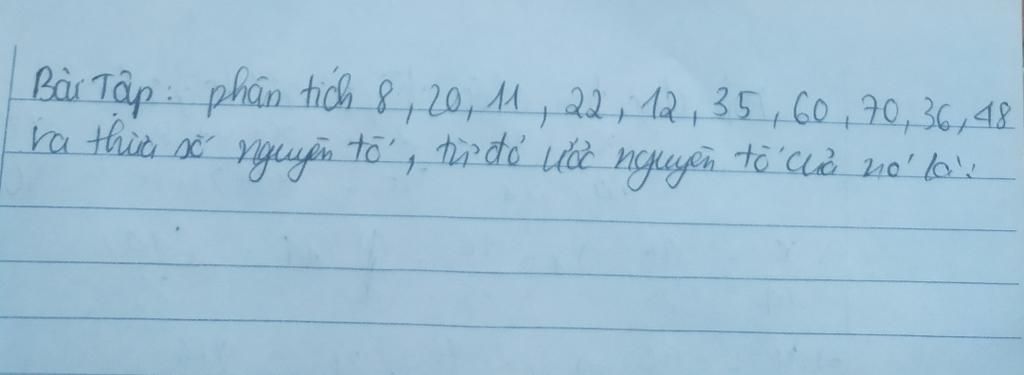 Bài Tập: phân tích 8, 20, 11, 22, 12, 35, 60, 70, 36, 48
ra thừa số nguyên tố, từ đó ước nguyên tố của nó là: